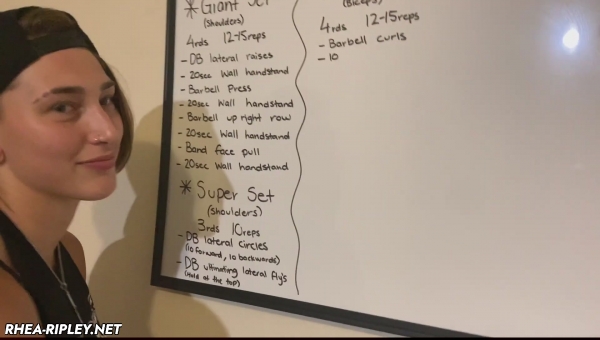 * Giant Set
(Shoulders)
4rds 12-15reps
- DB lateral raises
- 20sec Wall handstand
- Barbell Press
- 20sec Wall handstand
- Barbell up right row
- 20sec Wall handstand
- Band face pull
- 20sec Wall handstand
* Super Set
(Shoulders)
3rds 10reps
- DB lateral circles
(10 forward, 10 backwards)
- DB ultimating lateral fly's
(hold at the top)
(Biceps)
4rds 12-15reps
- Barbell curls
- 10
RHEA-RIPLEY.NET